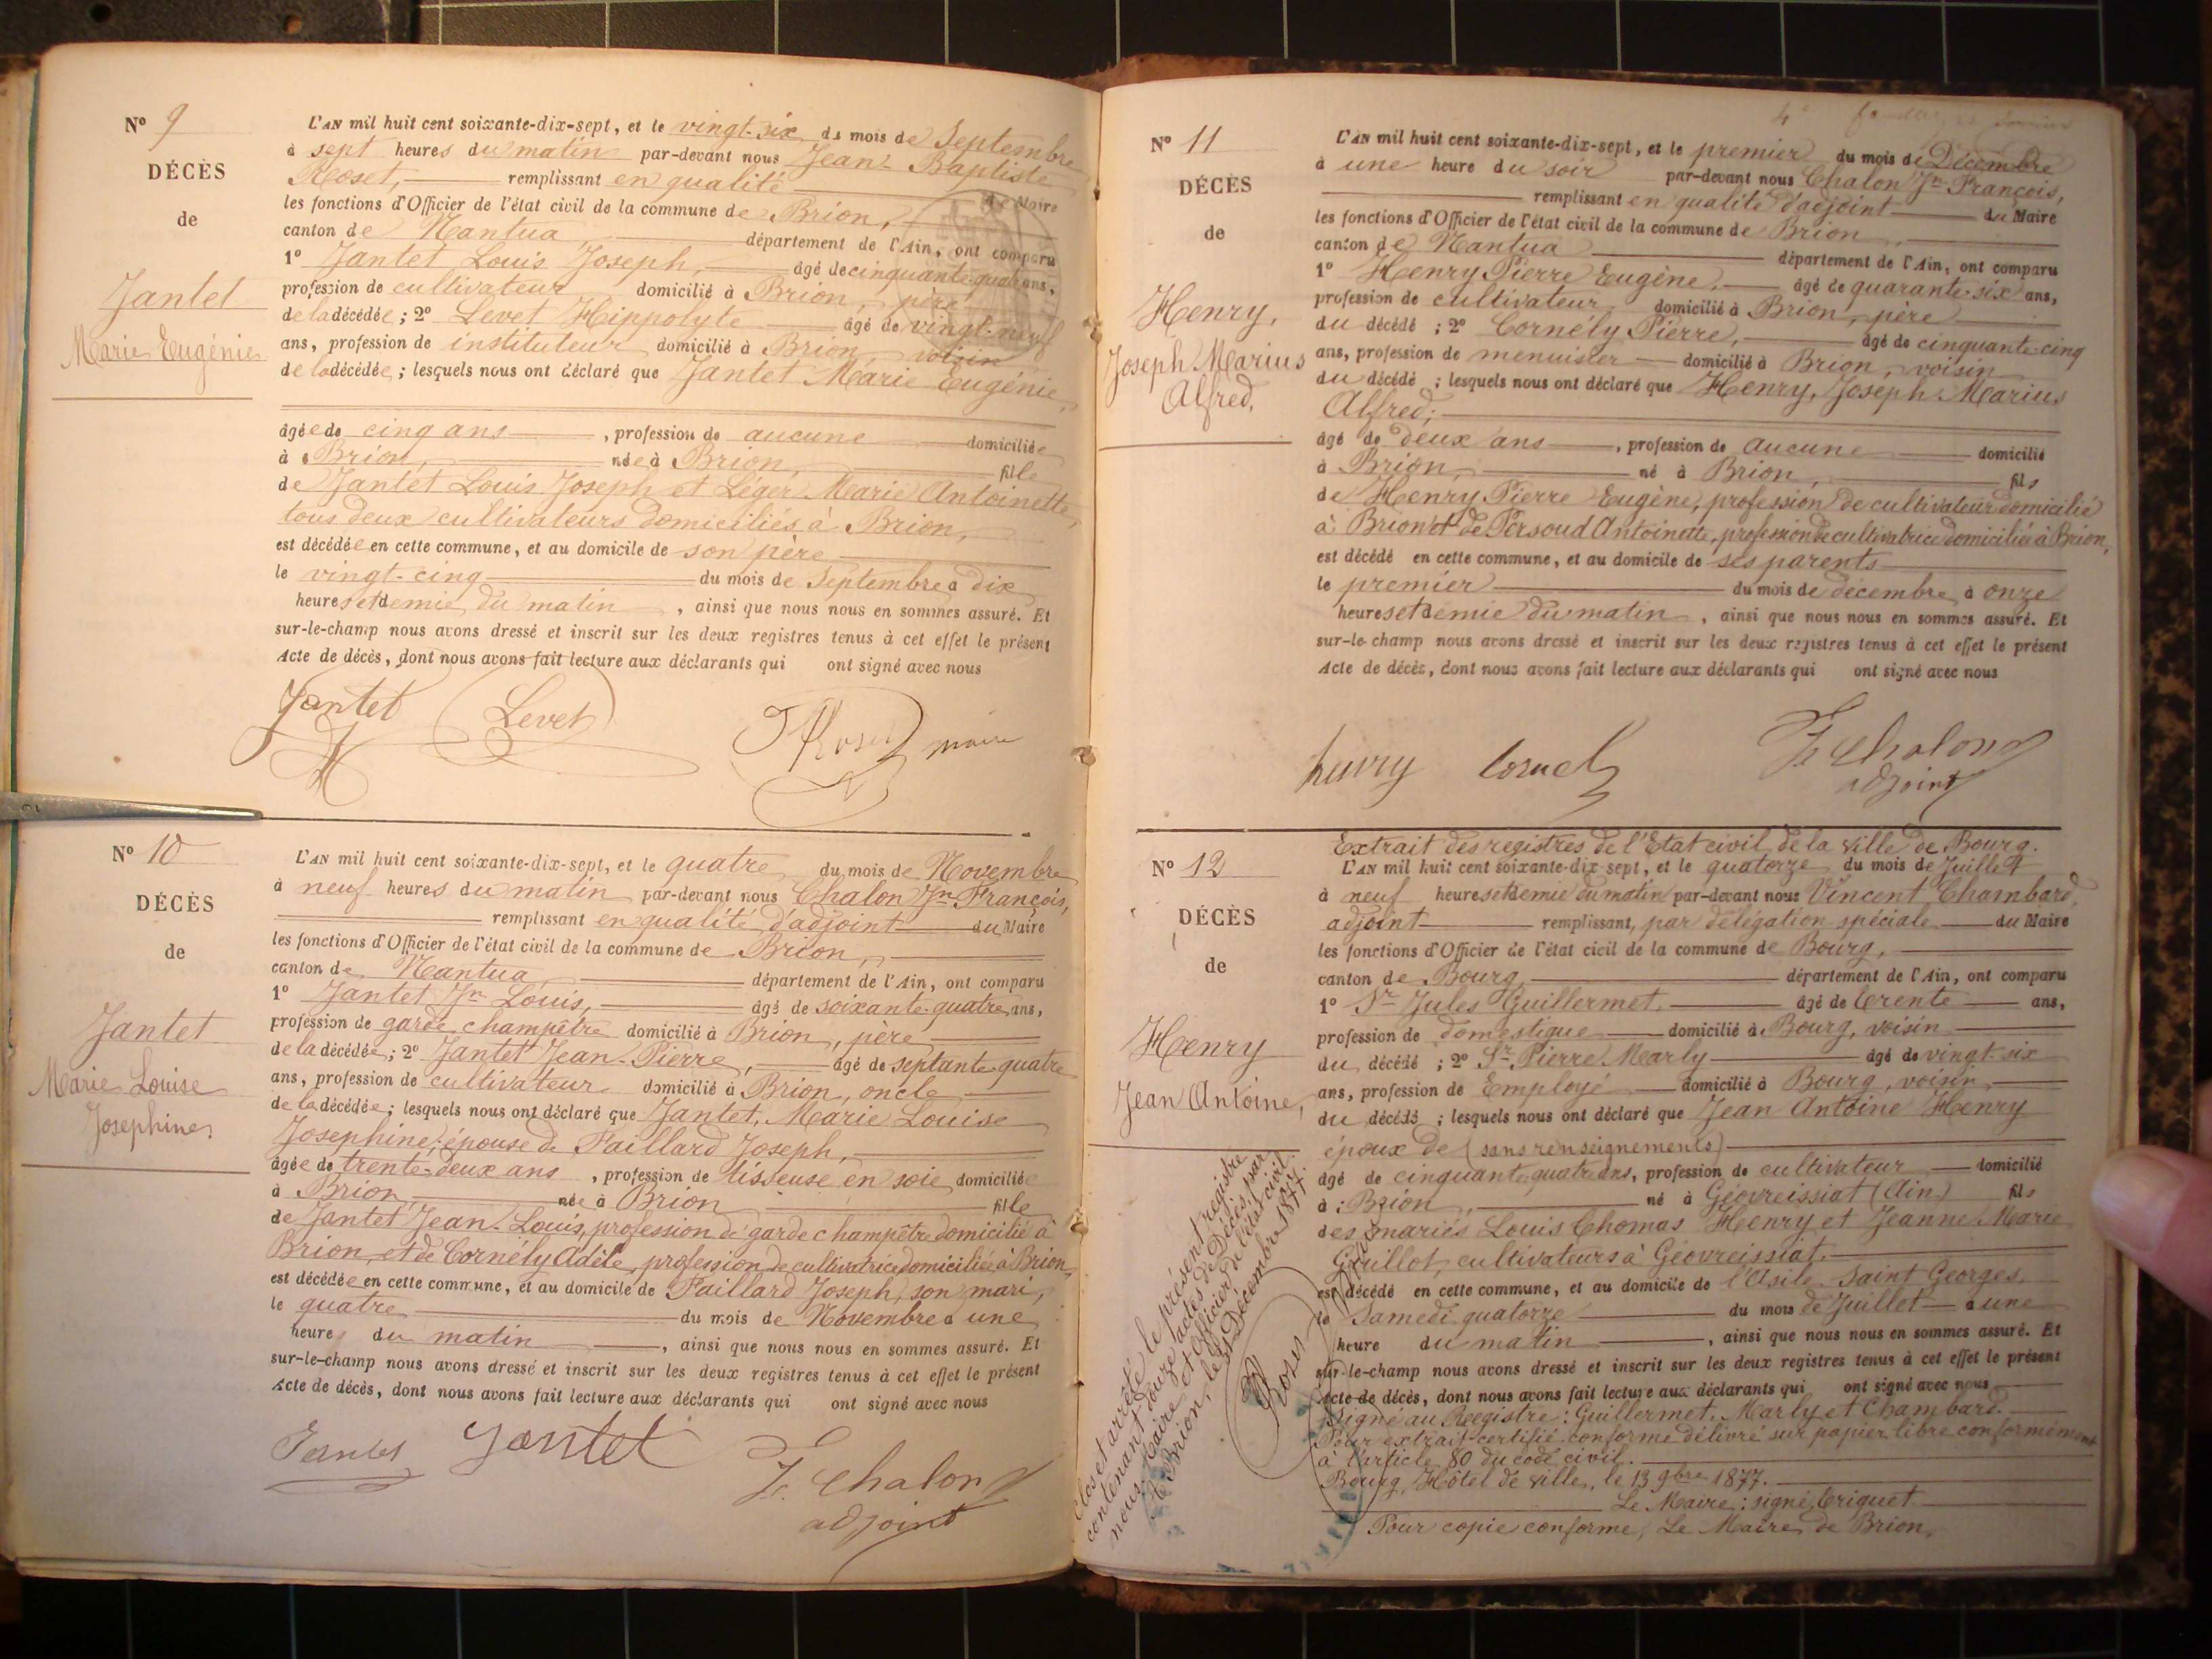 Nº 9
DÉCÈS
de
Jantet
Marie Eugénie
L'AN mil huit cent soixante-dix-sept, et le vingt-six du mois de Septembre
à sept heures du matin par-devant nous Jean-Baptiste
Roset, remplissant en qualité de Maire
les fonctions d'Officier de l'état civil de la commune de Brion,
canton de Nantua département de l'Ain, ont comparu
1º Jantet Louis Joseph, âgé de cinquante-quatre ans,
profession de cultivateur domicilié à Brion, père
de la décédée ; 2º Levet Hippolyte âgé de vingt-neuf
ans, profession de instituteur domicilié à Brion, voisin
de la décédée ; lesquels nous ont déclaré que Jantet Marie Eugénie,
âgée de cinq ans, profession de aucune domiciliée
à Brion, née à Brion, fille
de Jantet Louis Joseph et Léger Marie Antoinette,
tous deux cultivateurs domiciliés à Brion,
est décédée en cette commune, et au domicile de son père
le vingt-cinq du mois de Septembre à dix
heures et demie du matin, ainsi que nous nous en sommes assuré. Et
sur-le-champ nous avons dressé et inscrit sur les deux registres tenus à cet effet le présent
Acte de décès, dont nous avons fait lecture aux déclarants qui ont signé avec nous
Jantet Levet Roset maire
Nº 10
DÉCÈS
de
Jantet
Marie Louise
Josephine
L'AN mil huit cent soixante-dix-sept, et le quatre du mois de Novembre
à neuf heures du matin par-devant nous Chalon Jn François,
remplissant en qualité d'adjoint du Maire
les fonctions d'Officier de l'état civil de la commune de Brion,
canton de Nantua département de l'Ain, ont comparu
1º Jantet Jn Louis, âgé de soixante-quatre ans,
profession de garde champêtre domicilié à Brion, père
de la décédée ; 2º Jantet Jean-Pierre, âgé de septante-quatre
ans, profession de cultivateur domicilié à Brion, oncle
de la décédée ; lesquels nous ont déclaré que Jantet, Marie Louise
Josephine, épouse de Paillard Joseph,
âgée de trente-deux ans, profession de tisseuse en soie domiciliée
à Brion, née à Brion fille
de Jantet Jean-Louis, profession de garde champêtre domicilié à
Brion, et de Cornély Adèle, profession de cultivatrice domiciliée à Brion,
est décédée en cette commune, et au domicile de Paillard Joseph, son mari,
le quatre du mois de Novembre à une
heure du matin, ainsi que nous nous en sommes assuré. Et
sur-le-champ nous avons dressé et inscrit sur les deux registres tenus à cet effet le présent
Acte de décès, dont nous avons fait lecture aux déclarants qui ont signé avec nous
Jantet Jantet F. Chalon
adjoint
Nº 11
DÉCÈS
de
Henry,
Joseph Marius
Alfred,
L'AN mil huit cent soixante-dix-sept, et le premier du mois de Décembre
à une heure du soir par-devant nous Chalon Jn François,
remplissant en qualité d'adjoint du Maire
les fonctions d'Officier de l'état civil de la commune de Brion,
canton de Nantua département de l'Ain, ont comparu
1º Henry Pierre Eugène, âgé de quarante-six ans,
profession de cultivateur domicilié à Brion, père
du décédé ; 2º Cornély Pierre, âgé de cinquante-cinq
ans, profession de menuisier domicilié à Brion, voisin
du décédé ; lesquels nous ont déclaré que Henry, Joseph Marius
Alfred,
âgé de deux ans, profession de aucune domicilié
à Brion, né à Brion, fils
de Henry Pierre Eugène, profession de cultivateur domicilié
à Brion et de Persoud Antoinette, profession de cultivatrice domiciliée à Brion,
est décédé en cette commune, et au domicile de ses parents
le premier du mois de décembre à onze
heures et demie du matin, ainsi que nous nous en sommes assuré. Et
sur-le-champ nous avons dressé et inscrit sur les deux registres tenus à cet effet le présent
Acte de décès, dont nous avons fait lecture aux déclarants qui ont signé avec nous
henry F. Chalon
adjoint
Nº 12
DÉCÈS
de
Henry
Jean Antoine,
Extrait des registres de l'Etat civil de la ville de Bourg.
L'AN mil huit cent soixante-dix-sept, et le quatorze du mois de Juillet
à neuf heures et demie du matin par-devant nous Vincent Chambard,
adjoint remplissant, par délégation spéciale du Maire
les fonctions d'Officier de l'état civil de la commune de Bourg,
canton de Bourg, département de l'Ain, ont comparu
1º Sr Jules Guillermet, âgé de trente ans,
profession de domestique domicilié à Bourg, voisin
du décédé ; 2º Sr Pierre Marly âgé de vingt-six
ans, profession de Employé domicilié à Bourg, voisin
du décédé ; lesquels nous ont déclaré que Jean Antoine Henry
époux de (sans renseignements)
âgé de cinquante-quatre ans, profession de cultivateur domicilié
à Brion, né à Géovreissiat (Ain) fils
des mariés Louis Thomas Henry et Jeanne Marie
Guillot, cultivateurs à Géovreissiat.
est décédé en cette commune, et au domicile de l'Asile Saint Georges,
le Samedi quatorze du mois de Juillet à une
heure du matin, ainsi que nous nous en sommes assuré. Et
sur-le-champ nous avons dressé et inscrit sur les deux registres tenus à cet effet le présent
Acte de décès, dont nous avons fait lecture aux déclarants qui ont signé avec nous
Signé au Registre : Guillermet, Marly et Chambard.
Pour extrait certifié conforme délivré sur papier libre conformément
à l'article 80 du code civil.
Bourg, Hôtel de ville, le 13 9bre 1877.
Le Maire : signé, Triquet
Pour copie conforme, Le Maire de Brion,
Clos et arrêté le présent registre
contenant douze actes de Décès, par
nous, Maire et officier de l'état civil.
à Brion, le 31 Décembre 1877.
Roset